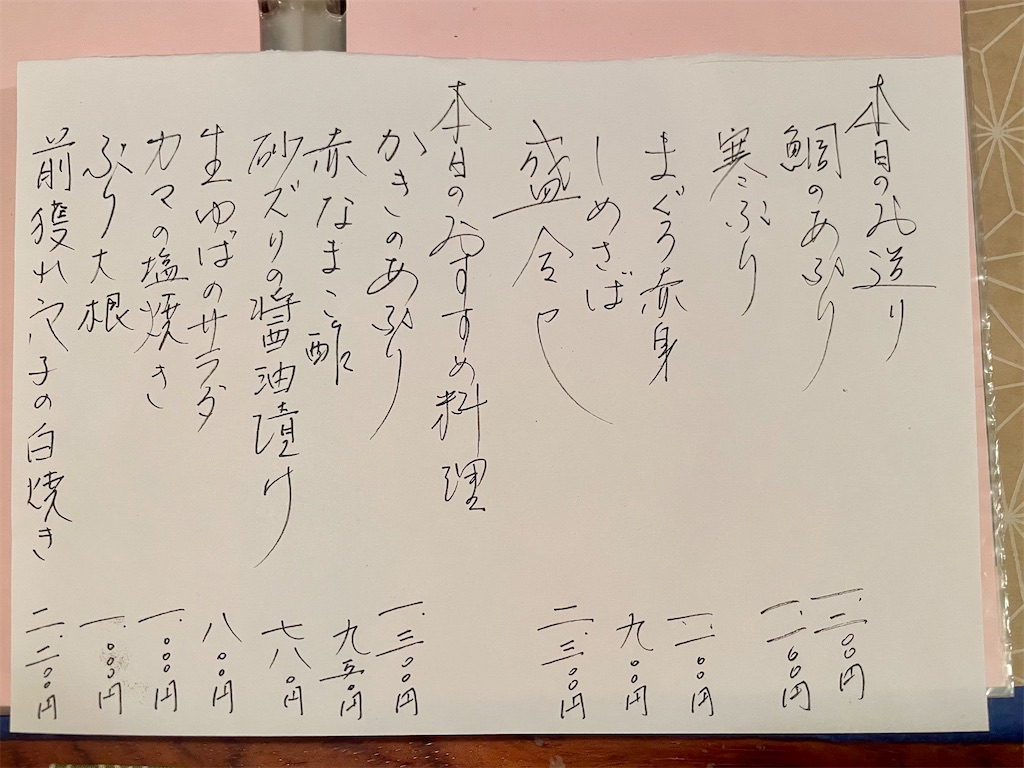 本日のお造り
鯛のあぶり 一.三〇〇円
寒ぶり 一.二〇〇円
まぐろ赤身 一.二〇〇円
しめさば 九〇〇円
盛合し 二.三〇〇円
本日のおすすめ料理
かきのあぶり 一.三〇〇円
赤なまこ酢 九五〇円
砂ズリの醤油漬け 六八〇円
生ゆばのサラダ 八〇〇円
カマの塩焼き 一.〇〇〇円
ぶり大根 一.〇〇〇円
前獲れ穴子の白焼き 二.二〇〇円